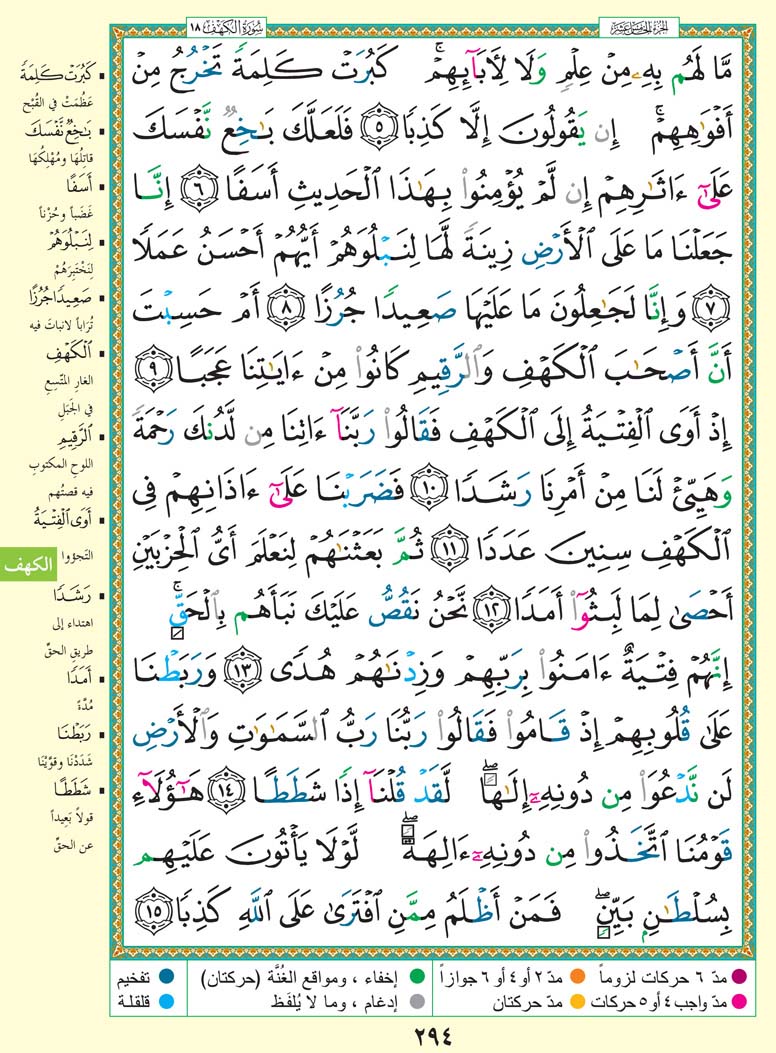 الجزء الخامس عشر
سورة الكهف ١٨
مَّا لَهُم بِهِۦ مِنْ عِلْمٍ وَلَا لِأَبَآئِهِمْ ۚ كَبُرَتْ كَلِمَةً تَخْرُجُ مِنْ
أَفْوَٰهِهِمْ ۚ إِن يَقُولُونَ إِلَّا كَذِبًا ٥ فَلَعَلَّكَ بَٰخِعٌ نَّفْسَكَ
عَلَىٰٓ ءَاثَٰرِهِمْ إِن لَّمْ يُؤْمِنُوا۟ بِهَٰذَا ٱلْحَدِيثِ أَسَفًا ٦ إِنَّا
جَعَلْنَا مَا عَلَى ٱلْأَرْضِ زِينَةً لَّهَا لِنَبْلُوَهُمْ أَيُّهُمْ أَحْسَنُ عَمَلًا
٧ وَإِنَّا لَجَٰعِلُونَ مَا عَلَيْهَا صَعِيدًا جُرُزًا ٨ أَمْ حَسِبْتَ
أَنَّ أَصْحَٰبَ ٱلْكَهْفِ وَٱلرَّقِيمِ كَانُوا۟ مِنْ ءَايَٰتِنَا عَجَبًا ٩
إِذْ أَوَى ٱلْفِتْيَةُ إِلَى ٱلْكَهْفِ فَقَالُوا۟ رَبَّنَآ ءَاتِنَا مِن لَّدُنكَ رَحْمَةً
وَهَيِّئْ لَنَا مِنْ أَمْرِنَا رَشَدًا ١٠ فَضَرَبْنَا عَلَىٰٓ ءَاذَانِهِمْ فِى
ٱلْكَهْفِ سِنِينَ عَدَدًا ١١ ثُمَّ بَعَثْنَٰهُمْ لِنَعْلَمَ أَىُّ ٱلْحِزْبَيْنِ
أَحْصَىٰ لِمَا لَبِثُوٓا۟ أَمَدًا ١٢ نَّحْنُ نَقُصُّ عَلَيْكَ نَبَأَهُم بِٱلْحَقِّ ۚ
إِنَّهُمْ فِتْيَةٌ ءَامَنُوا۟ بِرَبِّهِمْ وَزِدْنَٰهُمْ هُدًى ١٣ وَرَبَطْنَا
عَلَىٰ قُلُوبِهِمْ إِذْ قَامُوا۟ فَقَالُوا۟ رَبُّنَا رَبُّ ٱلسَّمَٰوَٰتِ وَٱلْأَرْضِ
لَن نَّدْعُوَا۟ مِن دُونِهِۦٓ إِلَٰهًا ۖ لَّقَدْ قُلْنَآ إِذًا شَطَطًا ١٤ هَٰٓؤُلَآءِ
قَوْمُنَا ٱتَّخَذُوا۟ مِن دُونِهِۦٓ ءَالِهَةً ۖ لَّوْلَا يَأْتُونَ عَلَيْهِم
بِسُلْطَٰنٍۭ بَيِّنٍ ۖ فَمَنْ أَظْلَمُ مِمَّنِ ٱفْتَرَىٰ عَلَى ٱللَّهِ كَذِبًا ١٥
• كَبُرَتْ كَلِمَةً
عَظُمَتْ في القُبْحِ
• بَٰخِعٌ نَّفْسَكَ
قاتِلُهَا ومُهْلِكُهَا
• أَسَفًا
غَضَباً وحُزْناً
• لِنَبْلُوَهُمْ
لِنَخْتَبِرَهُمْ
• صَعِيدًا جُرُزًا
تُرَاباً لا نباتَ فيه
• ٱلْكَهْفِ
الغارِ المتّسِعِ
في الجَبَلِ
• ٱلرَّقِيمِ
اللوحِ المكتوبِ
فيه قصتُهم
• أَوَى ٱلْفِتْيَةُ
التَجؤوا
• رَشَدًا
اهتداء إلى
طريقِ الحقّ
• أَمَدًا
مُدَّةً
• رَبَطْنَا
شَدَدْنَا وقوَّيْنَا
• شَطَطًا
قولاً بَعِيداً
عن الحقّ
الكهف
مدّ ٦ حركات لزوماً
مدّ ٢ أو ٤ أو ٦ جوازاً
إخفاء ، ومواقع الغُنَّة (حركتان)
تفخيم
مدّ واجب ٤ أو ٥ حركات
مدّ حركتان
إدغام ، وما لا يُلفَظ
قلقلة
٢٩٤